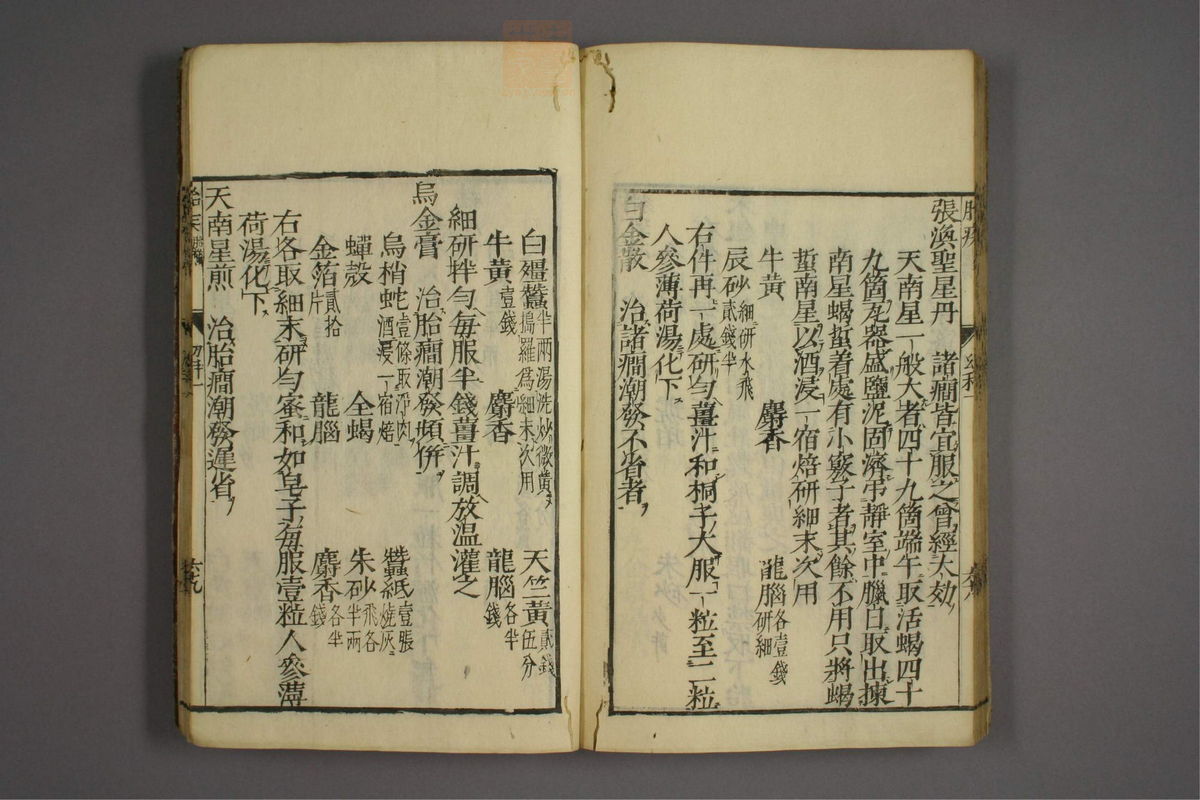 張渙聖星丹　諸癎皆宜服之曾經大効
天南星一般大者四十九箇端午取活蝎四十
九箇瓦器盛鹽泥固濟弔靜室中臘日取出揀
南星蝎蜇着處有小竅子者其餘不用只將蝎
蜇南星以酒浸一宿焙研細末次用
牛黃　麝香　龍腦各壹錢研細
辰砂細研水飛貳錢半
右件再一處研勻薑汁和桐子大服一粒至二粒
人參薄荷湯化下
白金散　治諸癎潮發不省者
白殭蠶半兩湯洗炒微黃搗羅爲細末次用　天竺黃貳錢伍分
牛黃壹錢　麝香　龍腦各半錢
細研拌勻每服半錢薑汁調放溫灌之
烏金膏　治胎癎潮發頻併
烏梢蛇壹條取淨肉酒浸一宿焙　蠶紙壹張燒灰
蟬殼　全蝎　朱砂飛各半兩
金箔貳拾片　龍腦　麝香各半錢
右各取細末研勻蜜和如皂子每服壹粒人參薄
荷湯化下
天南星煎　治胎癎潮發遲省